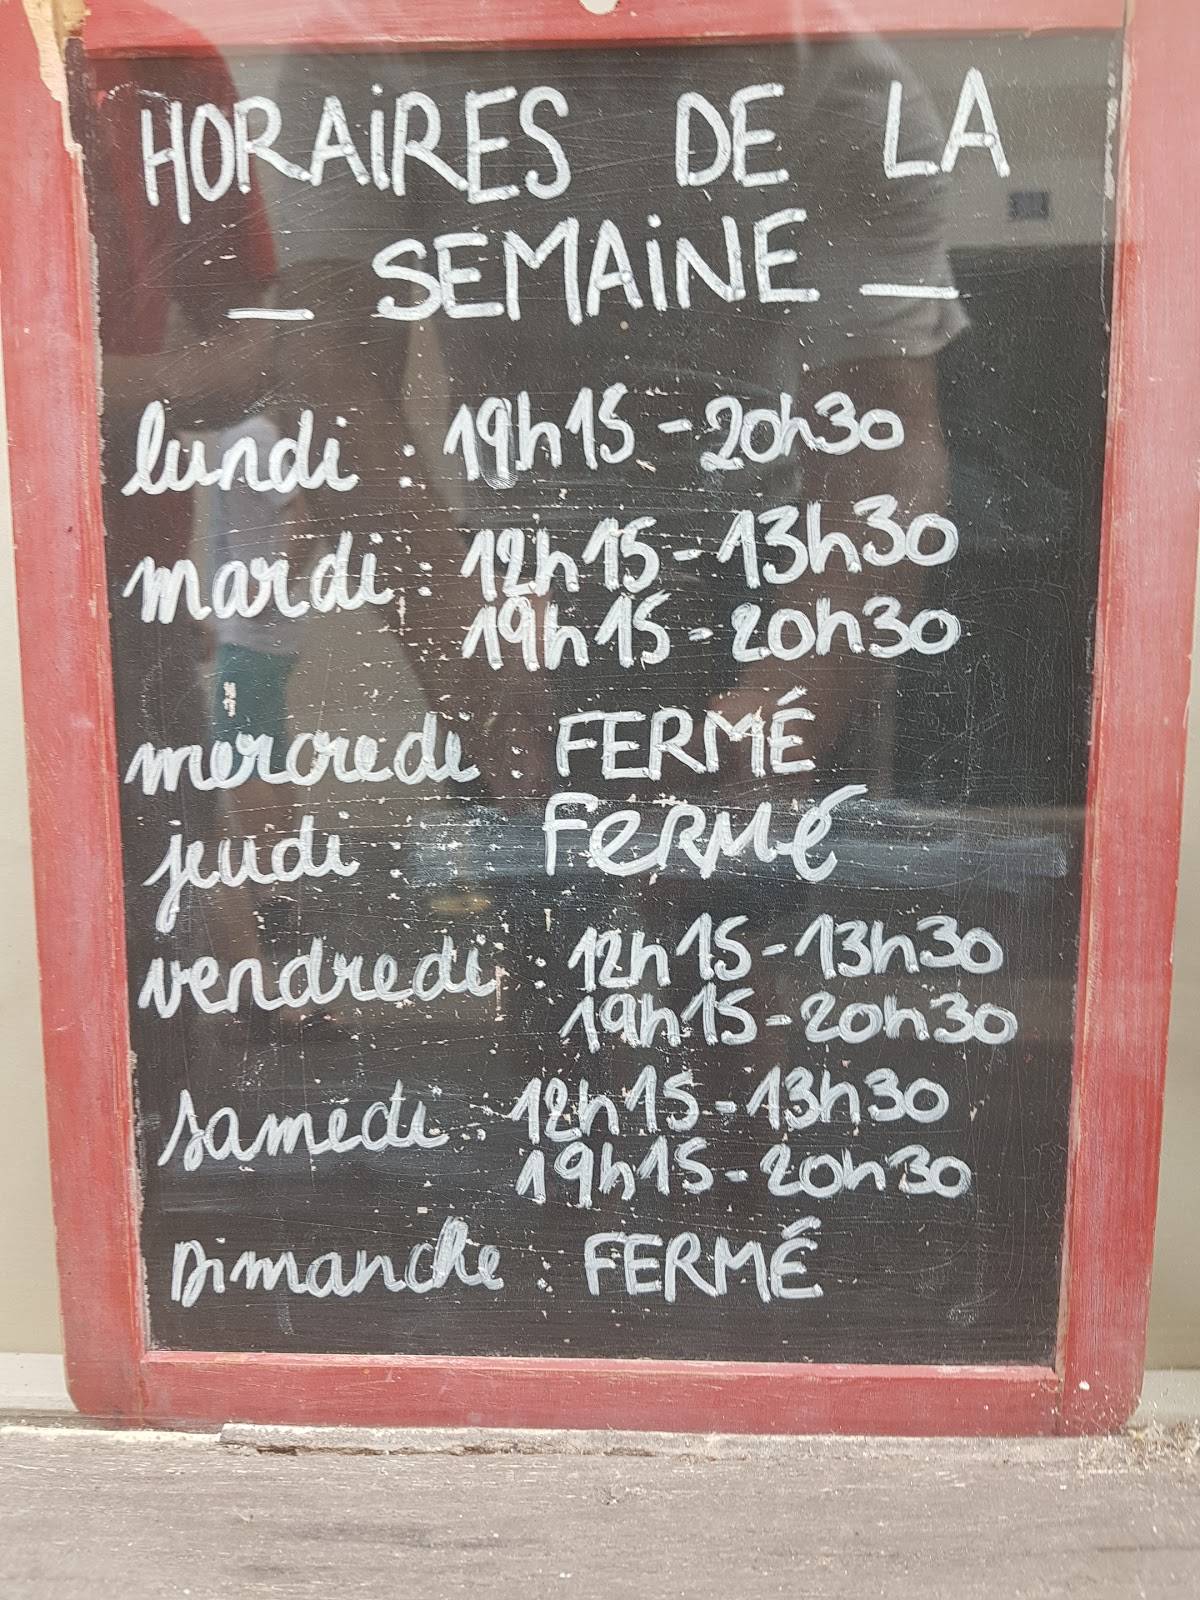 HORAiRES DE LA
_ SEMAiNE _
lundi : 19h15 - 20h30
mardi : 12h15 - 13h30
19h15 - 20h30
mercredi : FERMÉ
jeudi : FeRMé
vendredi : 12h15 - 13h30
19h15 - 20h30
samedi : 12h15 - 13h30
19h15 - 20h30
Dimanche : FERMÉ